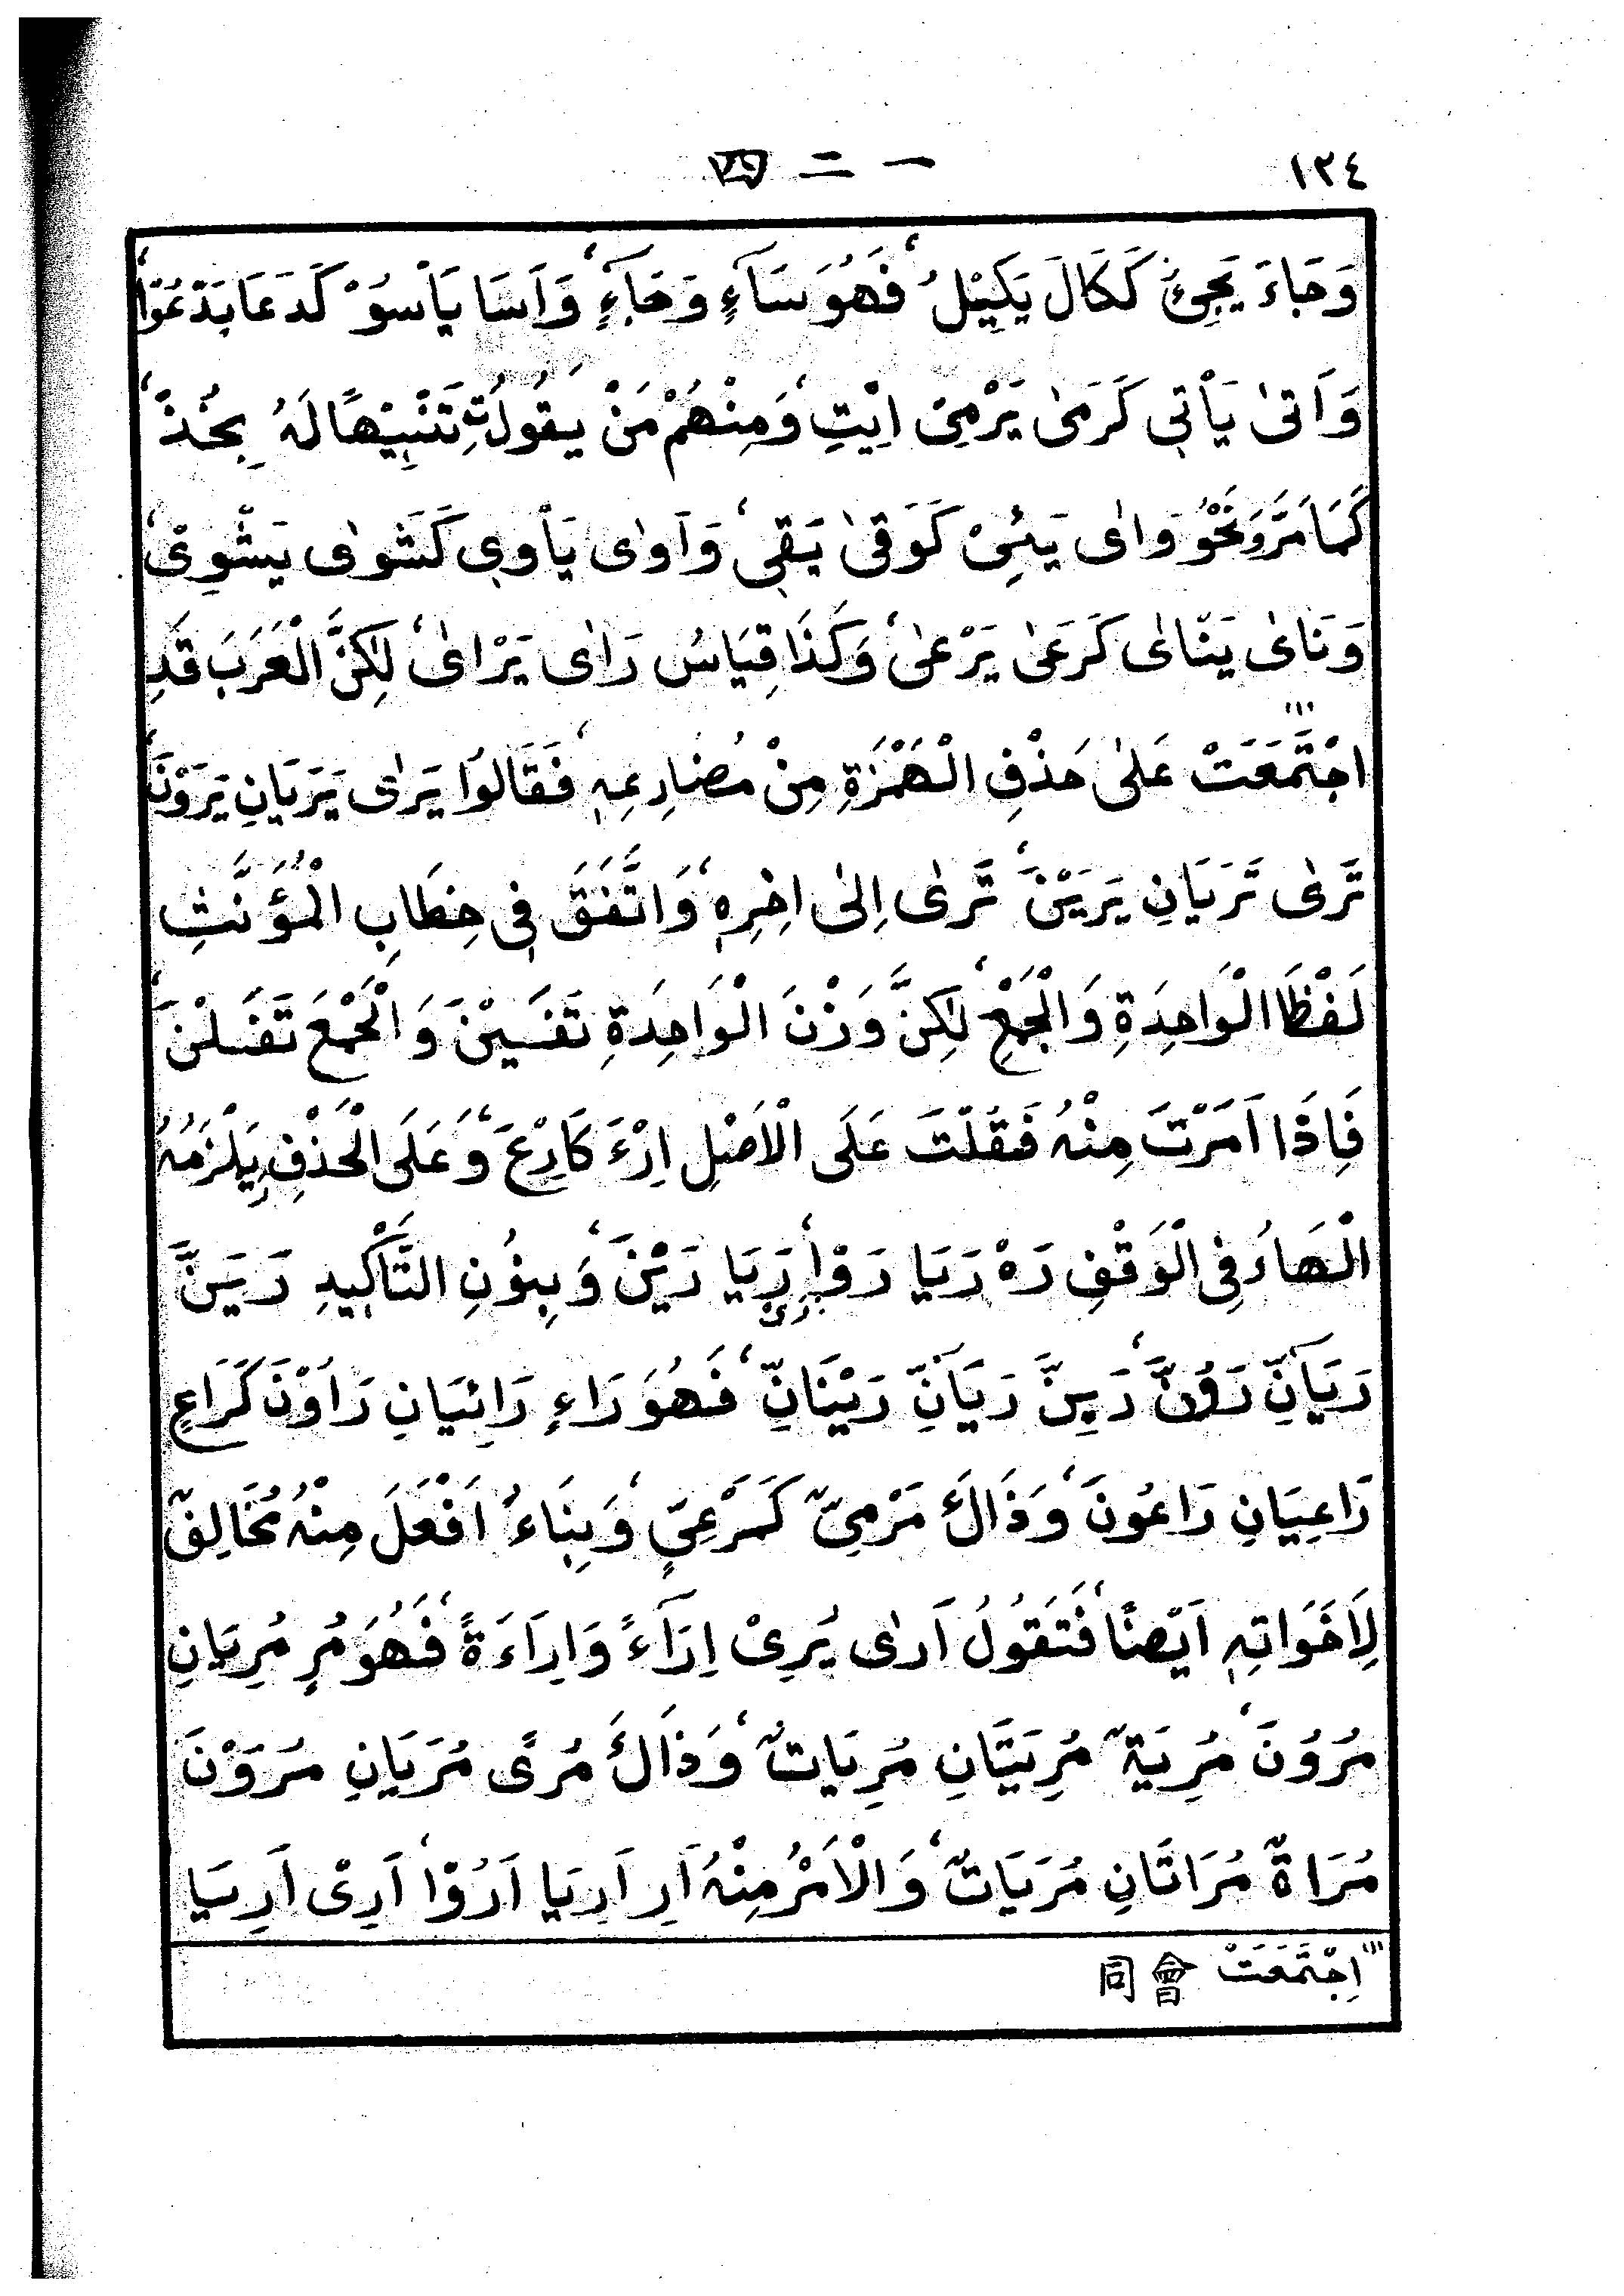 ١٢٤
一二四
وَجَاءَ يَجِئُ كَكَالَ يَكِيْلُ، فَهُوَ سَآءٍ وَجَآءٍ، وَاَسَا يَاْسُوْ كَدَعَا يَدْعُوْا،
وَاَتىٰ يَاْتِي كَرَمىٰ يَرْمِىْ اِيْتِ، وَمِنْهُمْ مَنْ يَقُولُ تِ تَشْبِيْهًا لَهُ بِخُذْ،
كَمَا مَرَّ وَنَحْوُ وَاٰى يَئِىْ كَوَقىٰ يَقِىْ، وَاَوٰى يَاْوِي كَشَوٰى يَشْوِىْ،
وَنَاىٰ يَنْاٰى كَرَعىٰ يَرْعىٰ، وَكَذَا قِيَاسُ رَاٰى يَرْاىٰ، لٰكِنَّ الْعَرَبَ قَدِ
اجْتَمَعَتْ عَلىٰ حَذْفِ الْهَمْزَةِ مِنْ مُضَارِعِهٖ، فَقَالُوا يَرٰى يَرَيَانِ يَرَوْنَ،
تَرٰى تَرَيَانِ يَرَيْنَ، تَرٰى اِلىٰ اخِرِهٖ، وَاتَّفَقَ فِي خِطَابِ الْمُؤَنَّثِ
لَفْظَا الْوَاحِدَةِ وَالْجَمْعِ، لٰكِنَّ وَزْنَ الْوَاحِدَةِ تَفَيْنَ وَالْجَمْعَ تَفَلْنَ،
فَاِذَا اَمَرْتَ مِنْهُ فَقُلْتَ عَلَى الْاَصْلِ اِرْءَ كَارْعَ، وَعَلَى الْحَذْفِ رَ يَلْزَمُهُ
الْهَاءُ فِي الْوَقْفِ رَهْ رَيَا رَوْا، رَىْ رَيَا رَيْنَ، وَبِنُونِ التَّاْكِيدِ رَيَنَّ
رَيَانِّ رَوُنَّ، رَيِنَّ رَيَانِّ رَيْنَانِّ، فَهُوَ رَاءٍ رَائِيَانِ رَاؤْنَ كَرَاعٍ
رَاعِيَانِ رَاعُونَ، وَذَاكَ مَرْمِىٌّ كَمَرْعِيٍّ، وَبِنَاءُ اَفْعَلَ مِنْهُ مُخَالِفٌ
لِاَخَوَاتِهٖ اَيْضًا، فَتَقُولُ اَرٰى يُرِىْ اِرَآءً وَاِرَاءَةً، فَهُوَ مُرٍ مُرِيَانِ
مُرُوْنَ، مُرِيَةٌ مُرِيَتَانِ مُرِيَاتٌ، وَذَاكَ مُرًى مُرَيَانِ مُرَوْنَ
مُرَاةٌ مُرَاتَانِ مُرَيَاتٌ، وَالْاَمْرُ مِنْهُ اَرِ اَرِيَا اَرُوْا، اَرِىْ اَرِيَا
اِجْتَمَعَتْ 會同